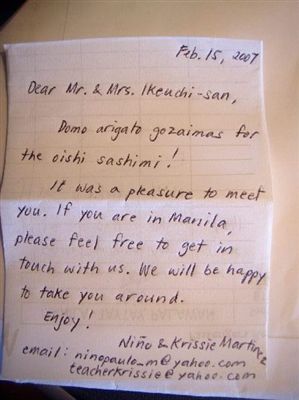 Feb. 15, 2007
Dear Mr. & Mrs. Ikeuchi-san,
Domo arigato gozaimas for
the oishi sashimi!
It was a pleasure to meet
you. If you are in Manila,
please feel free to get in
touch with us. We will be happy
to take you around.
Enjoy!
Niño & Krissie Martinez
email: ninopaulo_m@yahoo.com
teacherkrissie@yahoo.com